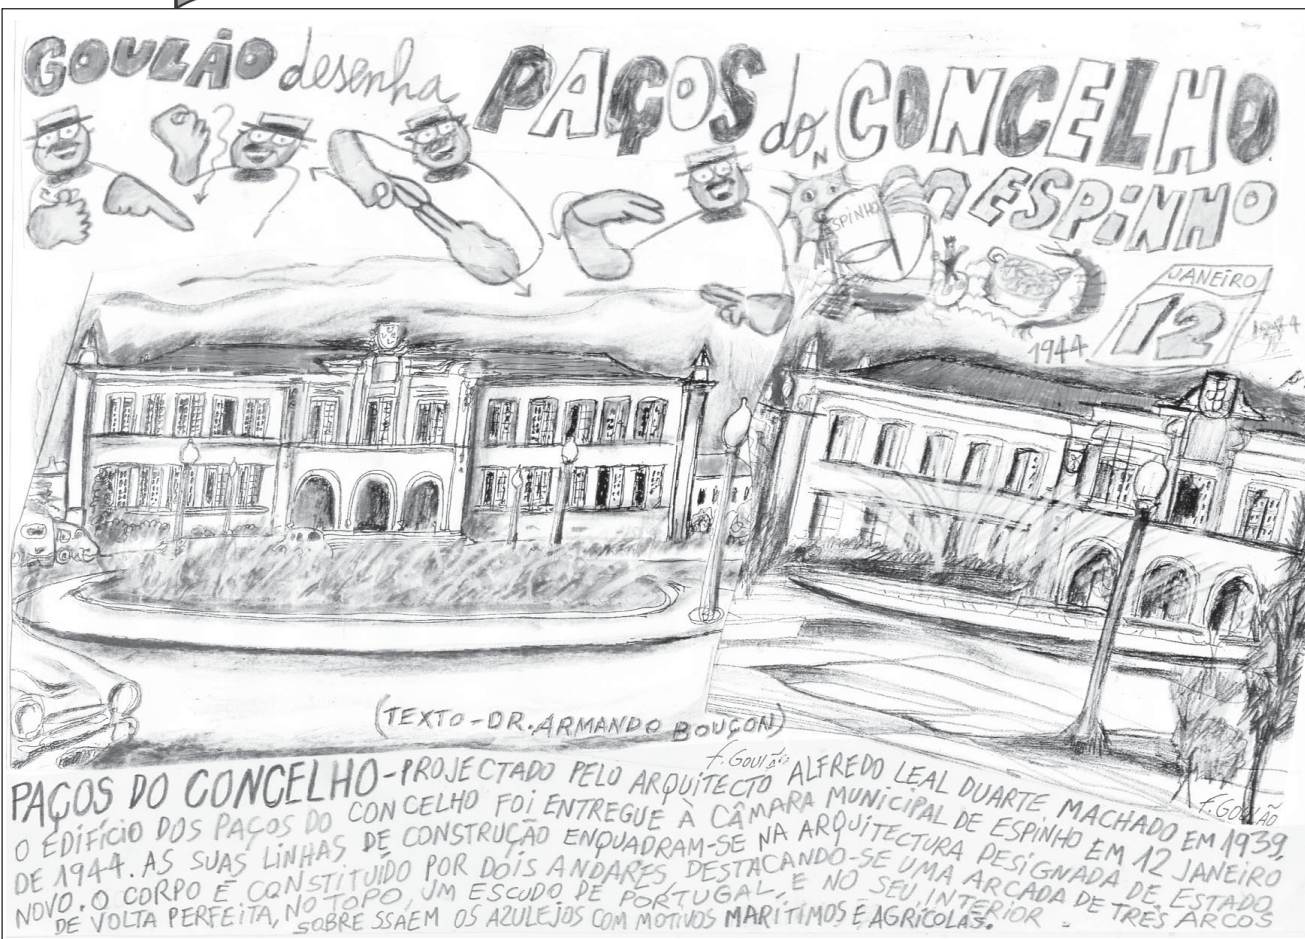 GOULÃO desenha PAÇOS do CONCELHO
N
ESPINHO
ESPINHO
JANEIRO
12
1944
(TEXTO-DR. ARMANDO BOUÇON)
F. GOULÃO
F. GOULÃO
PAÇOS DO CONCELHO-PROJECTADO PELO ARQUITECTO ALFREDO LEAL DUARTE MACHADO EM 1939,
O EDIFÍCIO DOS PAÇOS DO CONCELHO FOI ENTREGUE À CÂMARA MUNICIPAL DE ESPINHO EM 12 JANEIRO
DE 1944. AS SUAS LINHAS DE CONSTRUÇÃO ENQUADRAM-SE NA ARQUITECTURA DESIGNADA DE ESTADO
NOVO. O CORPO É CONSTITUÍDO POR DOIS ANDARES DESTACANDO-SE UMA ARCADA DE TRÊS ARCOS
DE VOLTA PERFEITA, NO TOPO, UM ESCUDO DE PORTUGAL, E NO SEU INTERIOR
SOBRESSAEM OS AZULEJOS COM MOTIVOS MARÍTIMOS E AGRÍCOLAS.